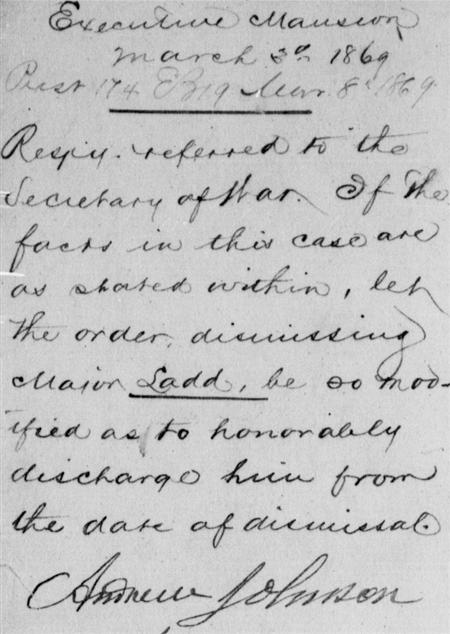 Executive Mansion,
March 3d 1869
174 Mar. 8th 1869.
Respy. referred to the
Secretary of War. If the
facts in this case are
as stated within, let
the order, dismissing
Major Ladd, be so mod-
ified as to honorably
discharge him from
the date of dismissal.
Andrew Johnson